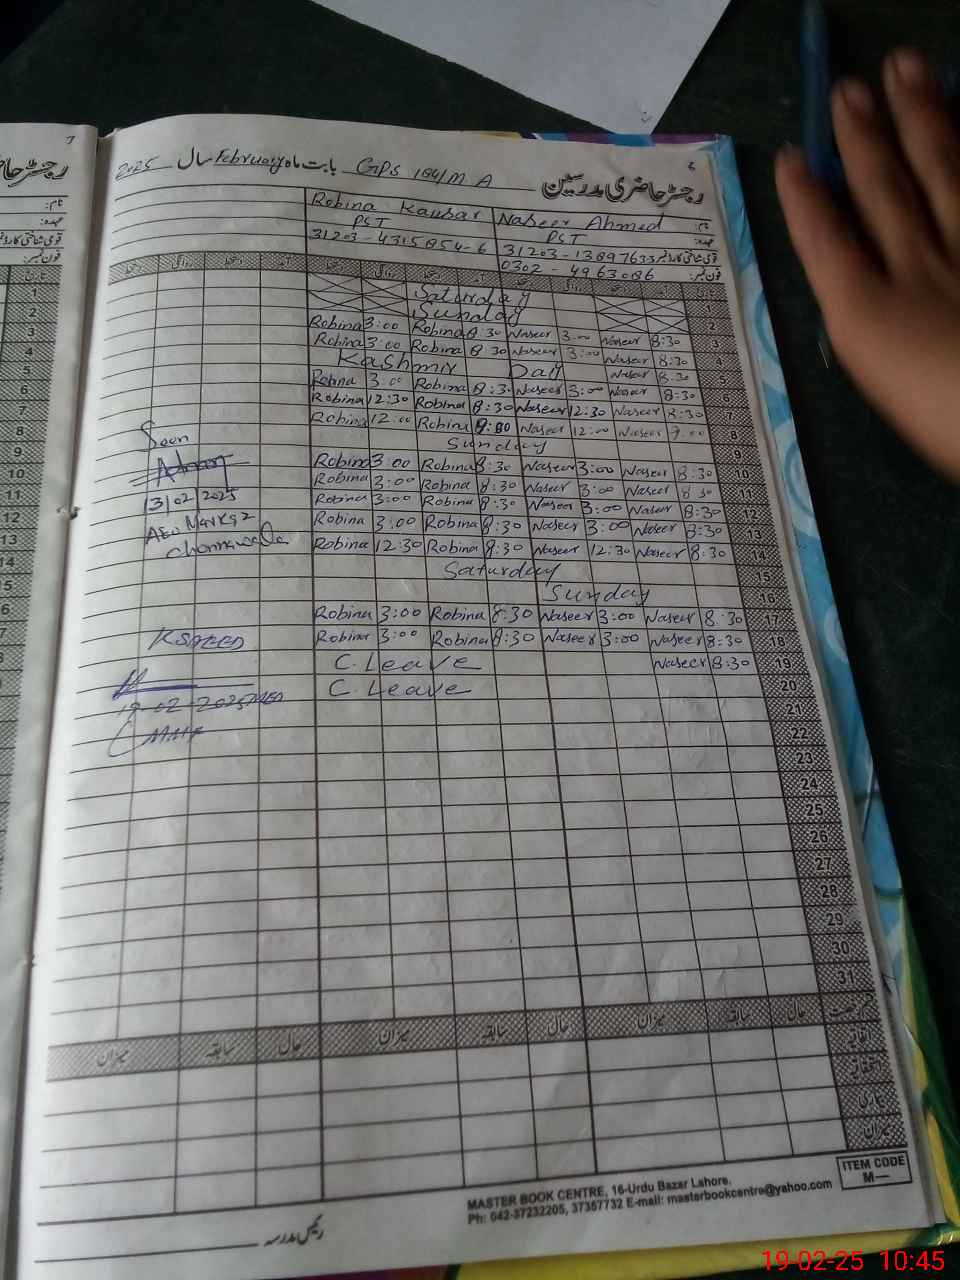 رجسٹر حاضری مدرسین GPS 184/M A بابت ماہ February سال 2025
نام: Naseer Ahmed Robina Kausar
عہدہ: PST PST
قومی شناختی کارڈ نمبر 31203-1389763-3 31203-4315854-6
فون نمبر: 0302-4963086
1 Saturday
2 Sunday
3 Robina 3:00 Robina 8:30 Naseer 3:00 Naseer 8:30
4 Robina 3:00 Robina 8:30 Naseer 3:00 Naseer 8:30
5 Kashmir Day Naseer 8:30
6 Robina 3:00 Robina 8:30 Naseer 3:00 Naseer 8:30
7 Robina 12:30 Robina 8:30 Naseer 12:30 Naseer 8:30
8 Robina 12:00 Robina 9:00 Naseer 12:00 Naseer 9:00
9 Sunday
10 Robina 3:00 Robina 8:30 Naseer 3:00 Naseer 8:30
11 Robina 3:00 Robina 8:30 Naseer 3:00 Naseer 8:30
12 Robina 3:00 Robina 8:30 Naseer 3:00 Naseer 8:30
13 Robina 3:00 Robina 8:30 Naseer 3:00 Naseer 8:30
14 Robina 12:30 Robina 8:30 Naseer 12:30 Naseer 8:30
15 Saturday
16 Sunday
17 Robina 3:00 Robina 8:30 Naseer 3:00 Naseer 8:30
18 Robina 3:00 Robina 8:30 Naseer 3:00 Naseer 8:30
19 C. Leave Naseer 8:30
20 C. Leave
21
22
23
24
25
26
27
28
29
30
31
Seen
13/02/2025
AEO Markaz
Channwala
KSAEED
19-02-2025
میزان سابقہ حال میزان سابقہ حال میزان سابقہ حال رخصت
اتفاقیہ
استحقاقیہ
بیماری
میزان
رئیس مدرسہ
MASTER BOOK CENTRE, 16-Urdu Bazar Lahore.
Ph: 042-37232205, 37357732 E-mail: masterbookcentre@yahoo.com
ITEM CODE
M—
19-02-25 10:45